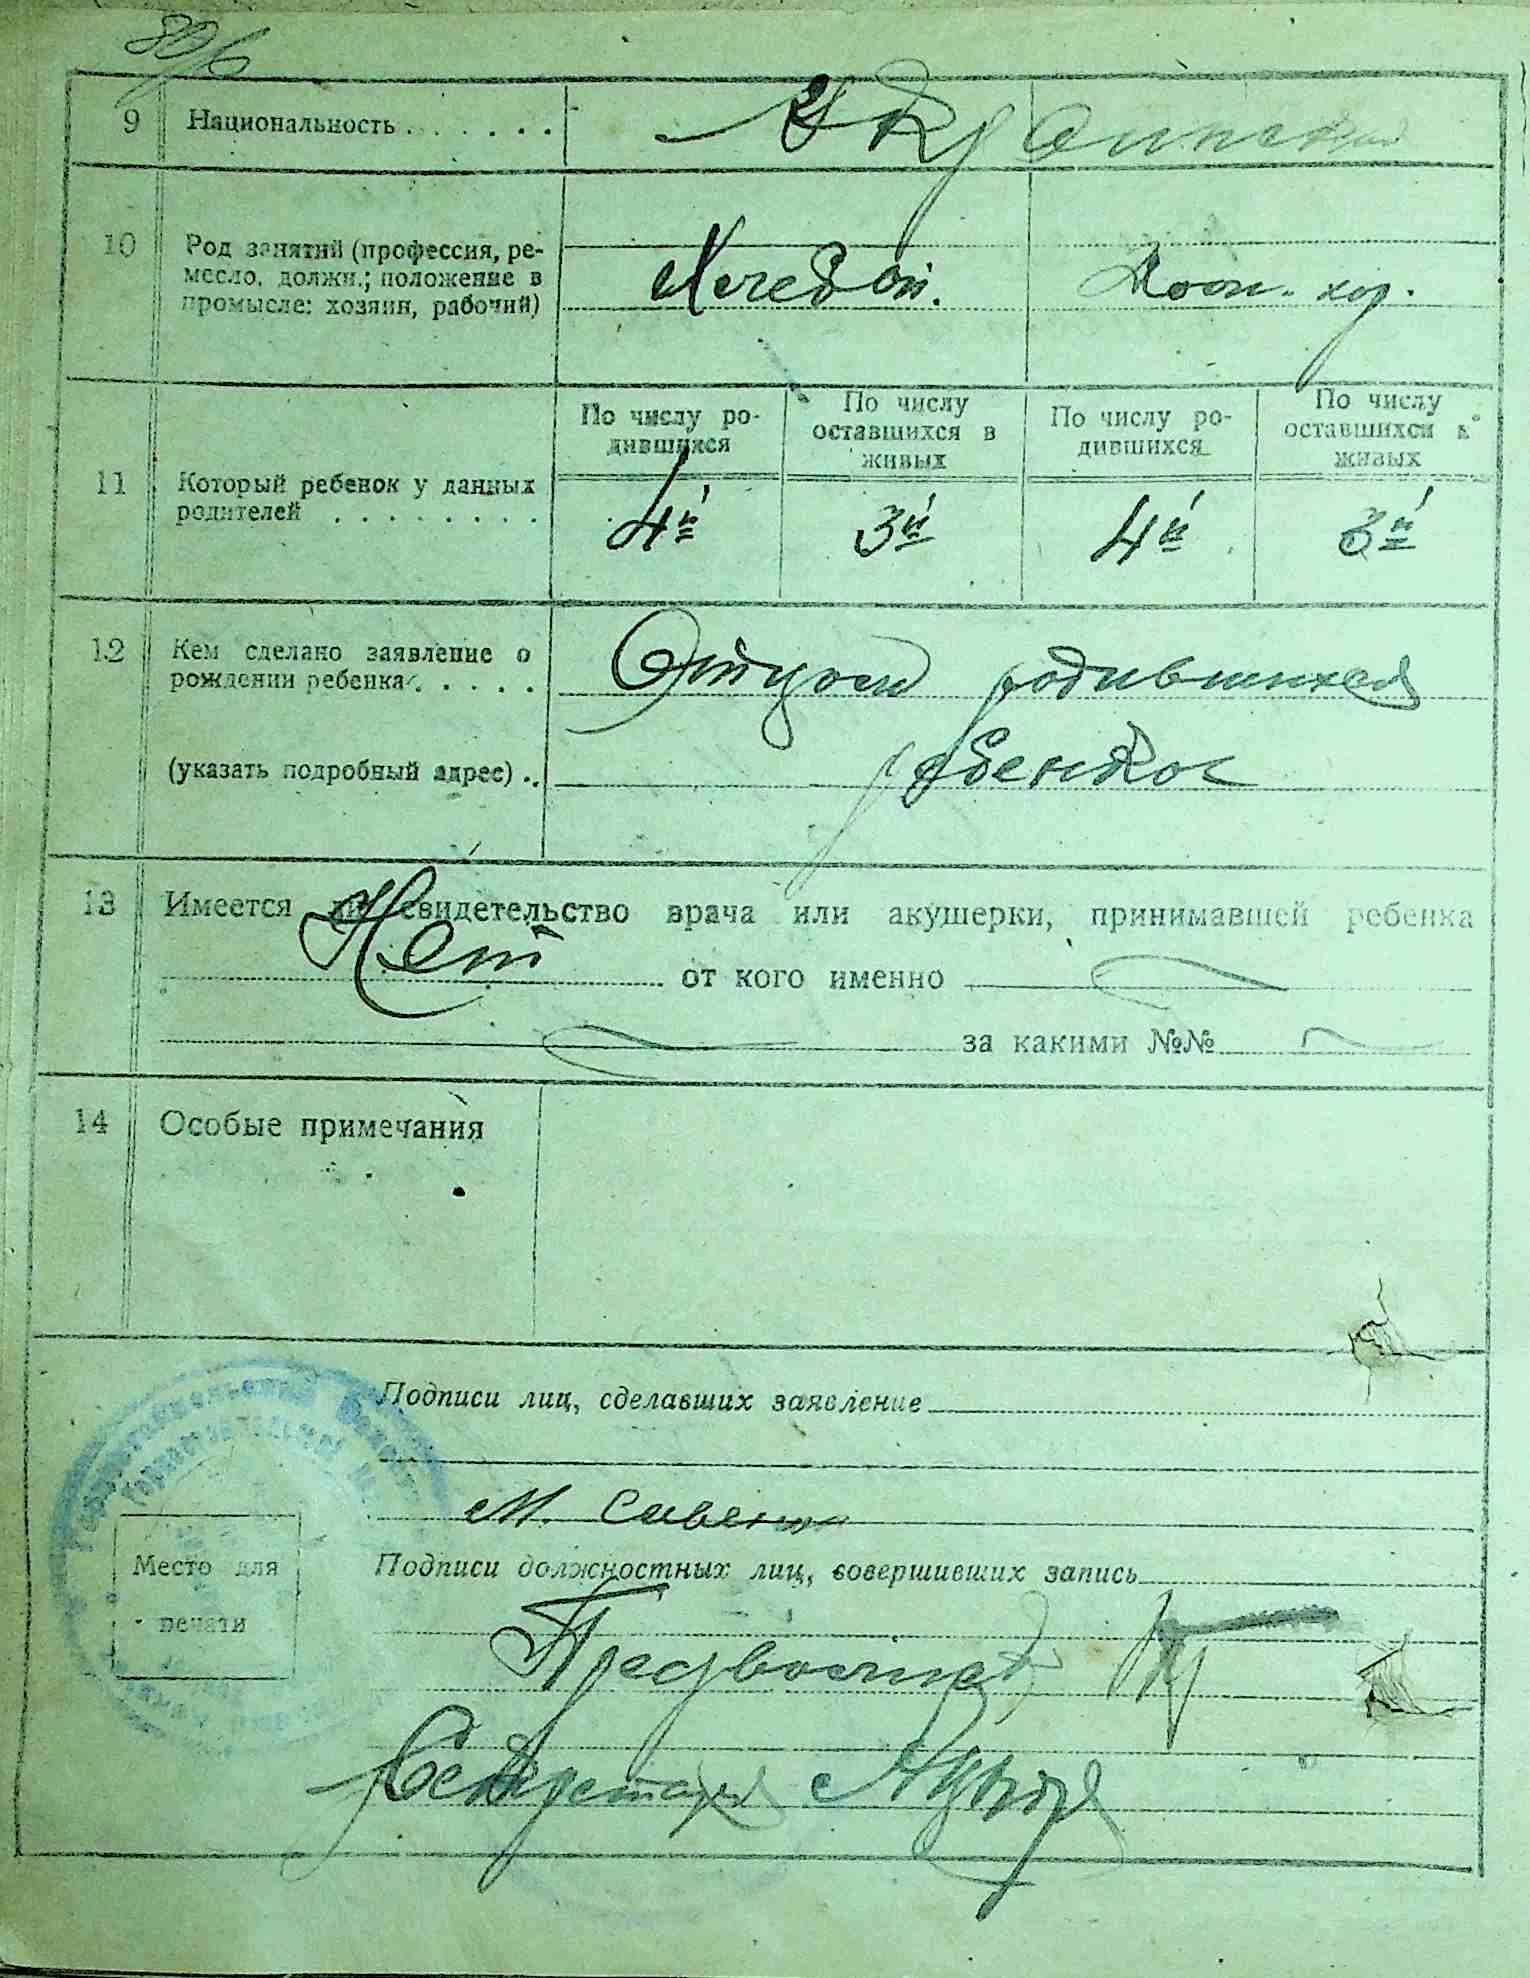 9 Национальность . . . . . . . Украинская
10 Род занятий (профессия, ре-
месло, должн.; положение в
промысле: хозяин, рабочий)
Хлебоп.
По числу ро-
дившихся
По числу
оставшихся в
живых
По числу ро-
дившихся
По числу
оставшихся в
живых
11 Который ребенок у данных
родителей . . . . . . . .
4й 3й 4й 3й
12 Кем сделано заявление о
рождении ребенка . . . . .
Отцом родившихся
(указать подробный адрес) . .
ребенка
13 Имеется ли свидетельство врача или акушерки, принимавшей ребенка
Нет от кого именно
за какими №№
14 Особые примечания
Подписи лиц, сделавших заявление
М. Савенко
Место для
печати
Подписи должностных лиц, совершивших запись
Секретарь